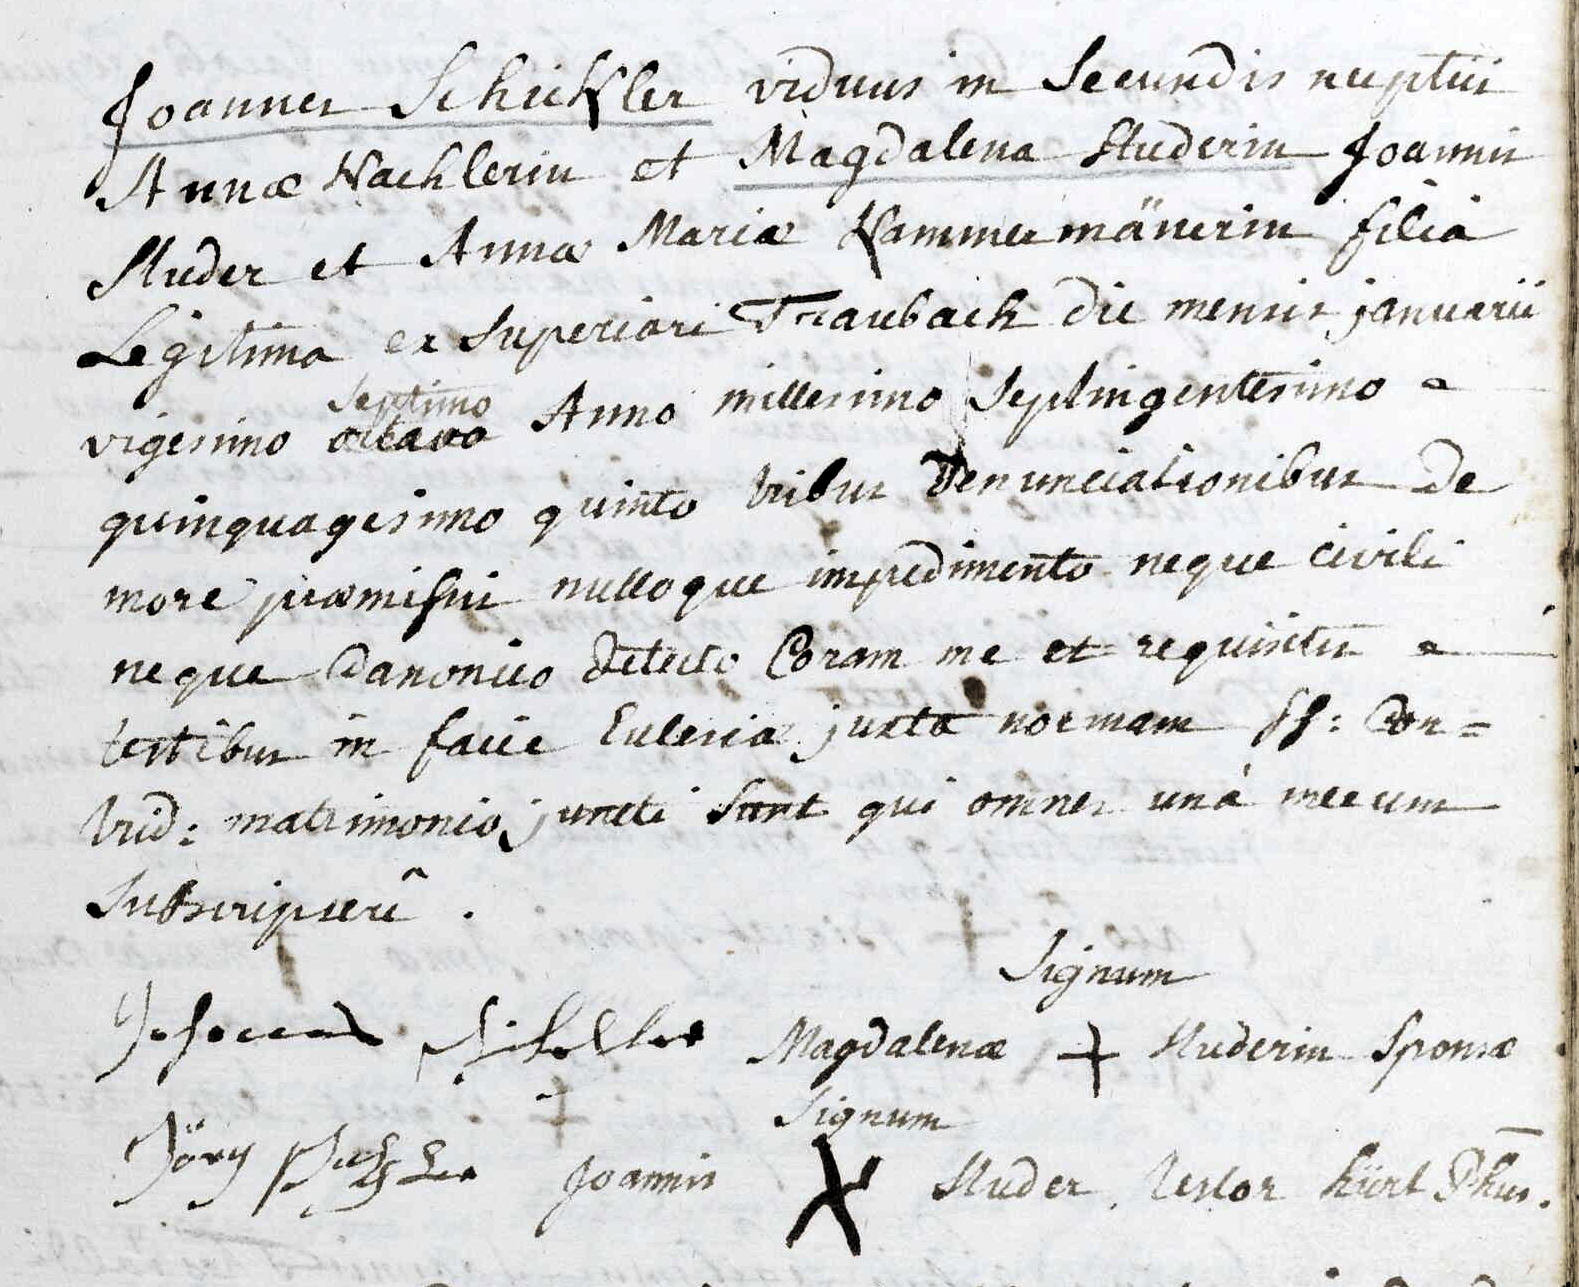 Joannes Schickler viduus in Secundis nuptiis
Annæ Wachlerin et Magdalena Studerin Joannis
Studer et Annæ Mariæ Hammermänerin filia
Legitima ex Superiori Traubach die mensis januarii
septimo
vigesimo octavo Anno millesimo Septingentesimo
quinquagesimo quinto tribus Denunciationibus de
more præmissis nulloque impedimento neque civili
neque Canonico detecto Coram me et requisitis
testibus in facie Eclesiæ juxta normam SS: Con=
trid: matrimonio juncti Sunt qui omnes unà mecum
Subscripserũ .
Signum
Magdalenæ + Studerin Sponsæ
Signum
Jöry Joannis X Studer